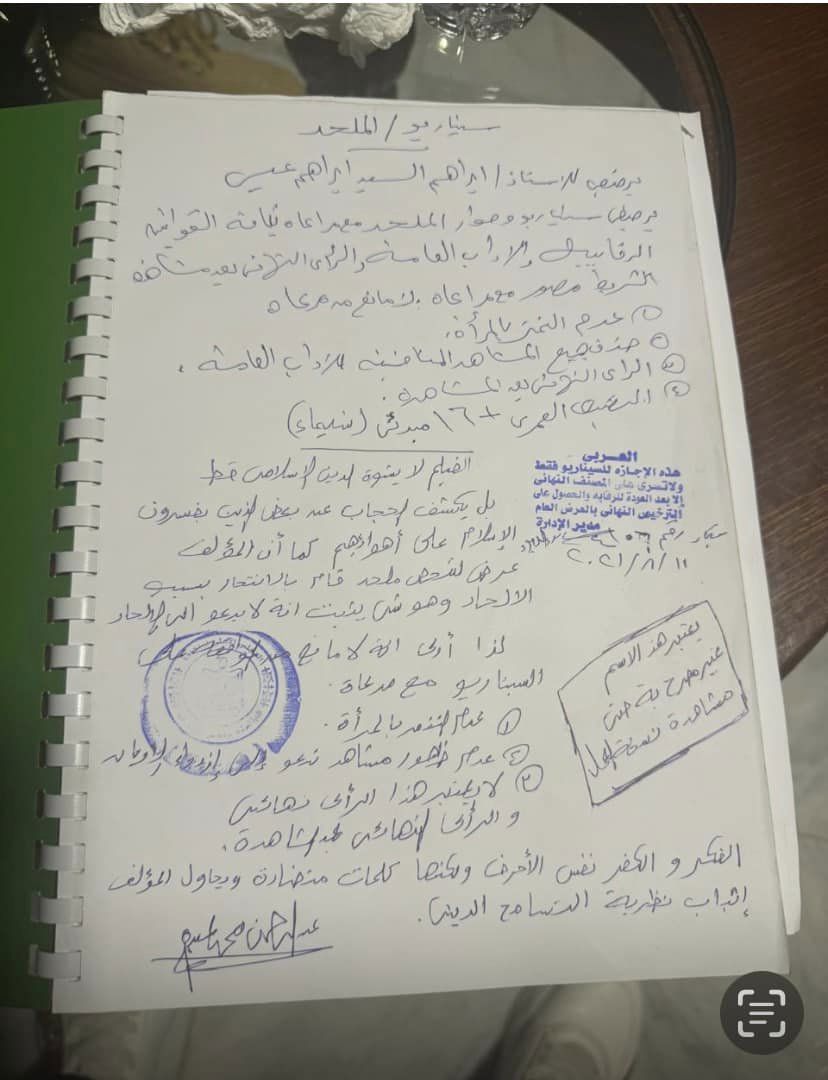 سيناريو / الملحد
يرخص للاستاذ / ابراهيم السيد ابراهيم عيسى
يرخص سيناريو وحوار الملحد مع مراعاه كافة القوانين
الرقابية والاداب العامة والرأى النهائى بعد مشاهدة
الشريط مصور مع مراعاه لا مانع مراعاه
① عدم التنمر بالمرأة.
② حذف جميع المشاهد المنافية للآداب العامة.
③ الراى النهائى بعد المشاهدة.
④ التصنيف العمرى + ١٦ مبدئى (شيماء)
الفيلم لا يشوة الدين الإسلامى قط
بل يكشف الحجاب عن بعض الذين يفسرون
الإسلام على أهوائهم كما أن المؤلف
عرض لشخص ملحد قام بالانتحار بسبب
الالحاد وهو شئ يثبت انة لا يدعو الى الإلحاد
لذا أرى انة لا مانع من الموافقة على
السيناريو مع مرعاة.
① عدم التنمر بالمرأة.
② عدم ظهور مشاهد تدعو إلى إزدراء الأديان
③ لا يعتبر هذا الرأى نهائى
و الرأى النهائى بعد المشاهدة.
الفكر و الكفر نفس الأحرف ولكنها كلمات متضادة ويحاول المؤلف
إثبات نظرية التسامح الدينى.
العربى
هذه الإجازه للسيناريو فقط
ولا تسرى على المصنف النهائى
إلا بعد العودة للرقابه والحصول على
الترخيص النهائى بالعرض العام
مدير الإدارة
رقم
٢٠٢١/٨/١١
يعتبر هذا الاسم
غير مصرح بة حتى
مشاهدة نسخة العمل